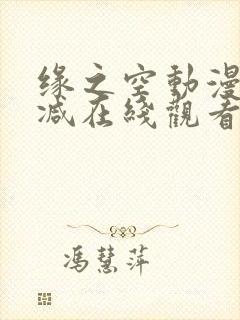 缘之空動漫
減在綫觀看
馮慧萍